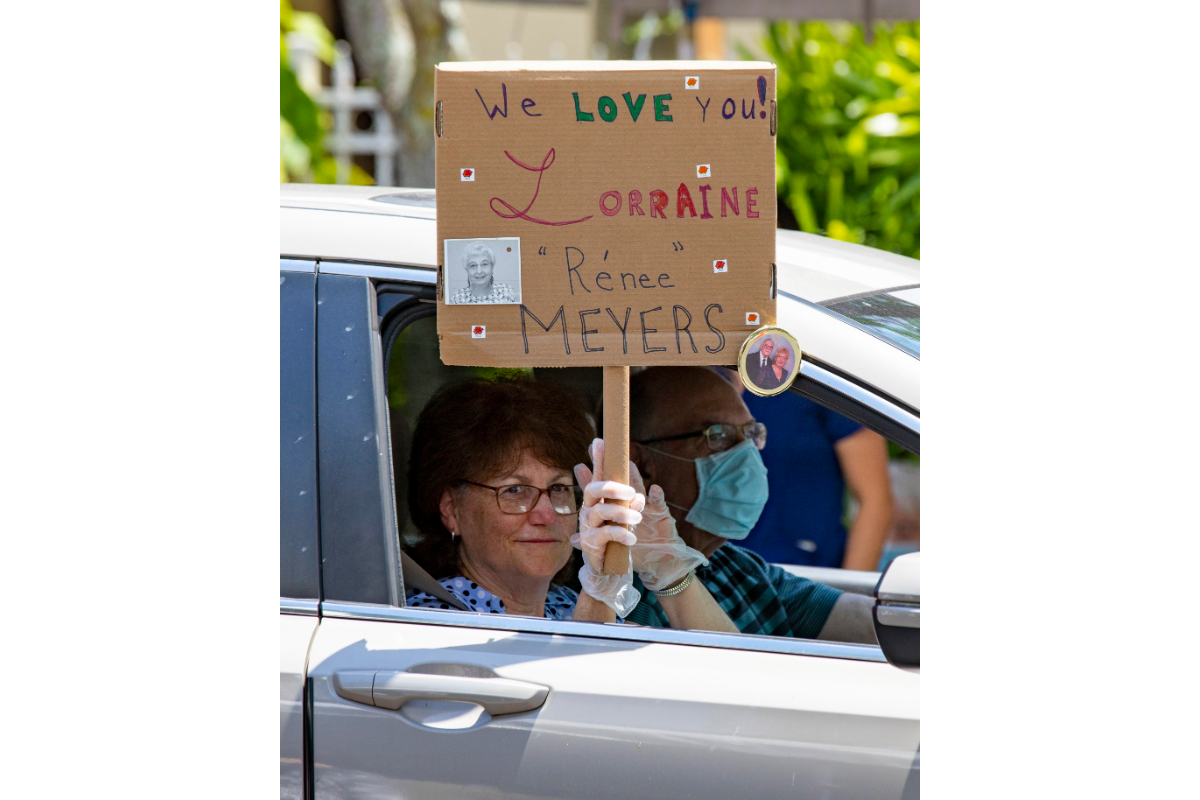 We LOVE You!
LORRAINE
"Rénee"
MEYERS